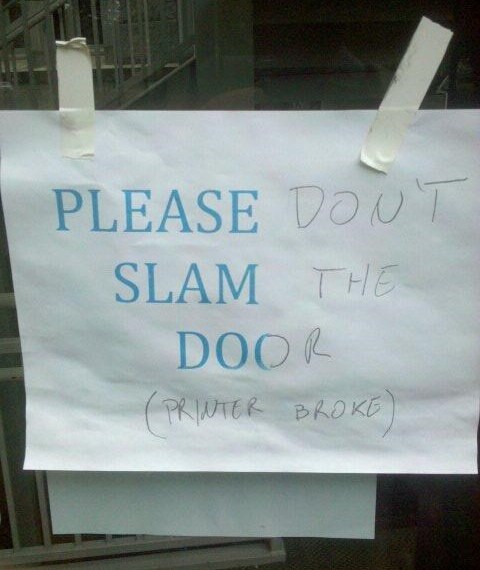 PLEASE DON'T
SLAM THE
DOOR
(PRINTER BROKE)